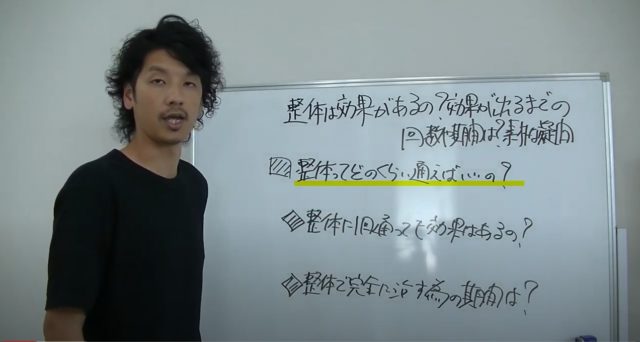 整体は効果があるの?効果が出るまでの
回数や期間は?素朴な疑問
整体ってどのくらい通えばいいの?
整体に1回通っても効果はあるの?
整体で完全に治す為の期間は?